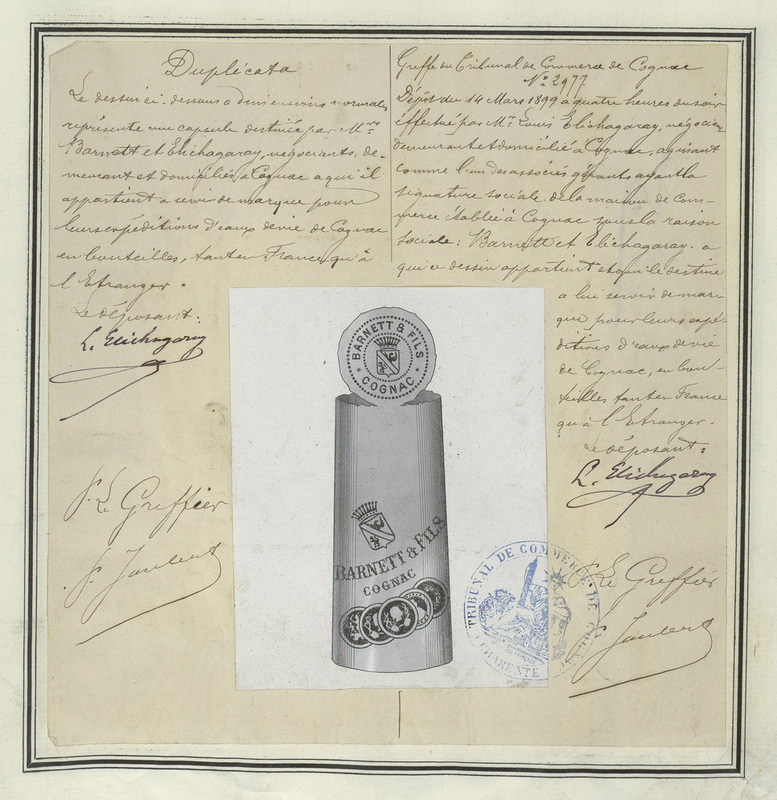 Duplicata
Le dessin ci-dessous a dimensions normales
représente une capsule destinée par Mrs
Barnett et Elichagaray, négociants, de-
meurant et domiciliés à Cognac a qui il
appartient a servir de marque pour
leurs expéditions d'eaux de vie de Cognac
en bouteilles, tant en France qu'à
l'Etranger.
Le déposant:
L. Elichagaray
p. Le Greffier
Greffe du Tribunal de Commerce de Cognac
No 2977
Dépôt du 14 Mars 1899 à quatre heures du soir
effectué par Mr Louis Elichagaray, négociant
demeurant et domicilié à Cognac, agissant
comme l'un des associés gérants ayant la
signature sociale de la maison de Com-
merce établie à Cognac sous la raison
sociale: Barnett et Elichagaray. a
qui ce dessin appartient et qui le destine
a lui servir de mar-
que pour leurs expé-
ditions d'eaux de vie
de Cognac, en bou-
teilles tant en France
qu'à l'Etranger.
Le déposant:
L. Elichagaray
p. Le Greffier
BARNETT & FILS
COGNAC
BARNETT & FILS
COGNAC
TRIBUNAL DE COMMERCE DE
CHARENTE